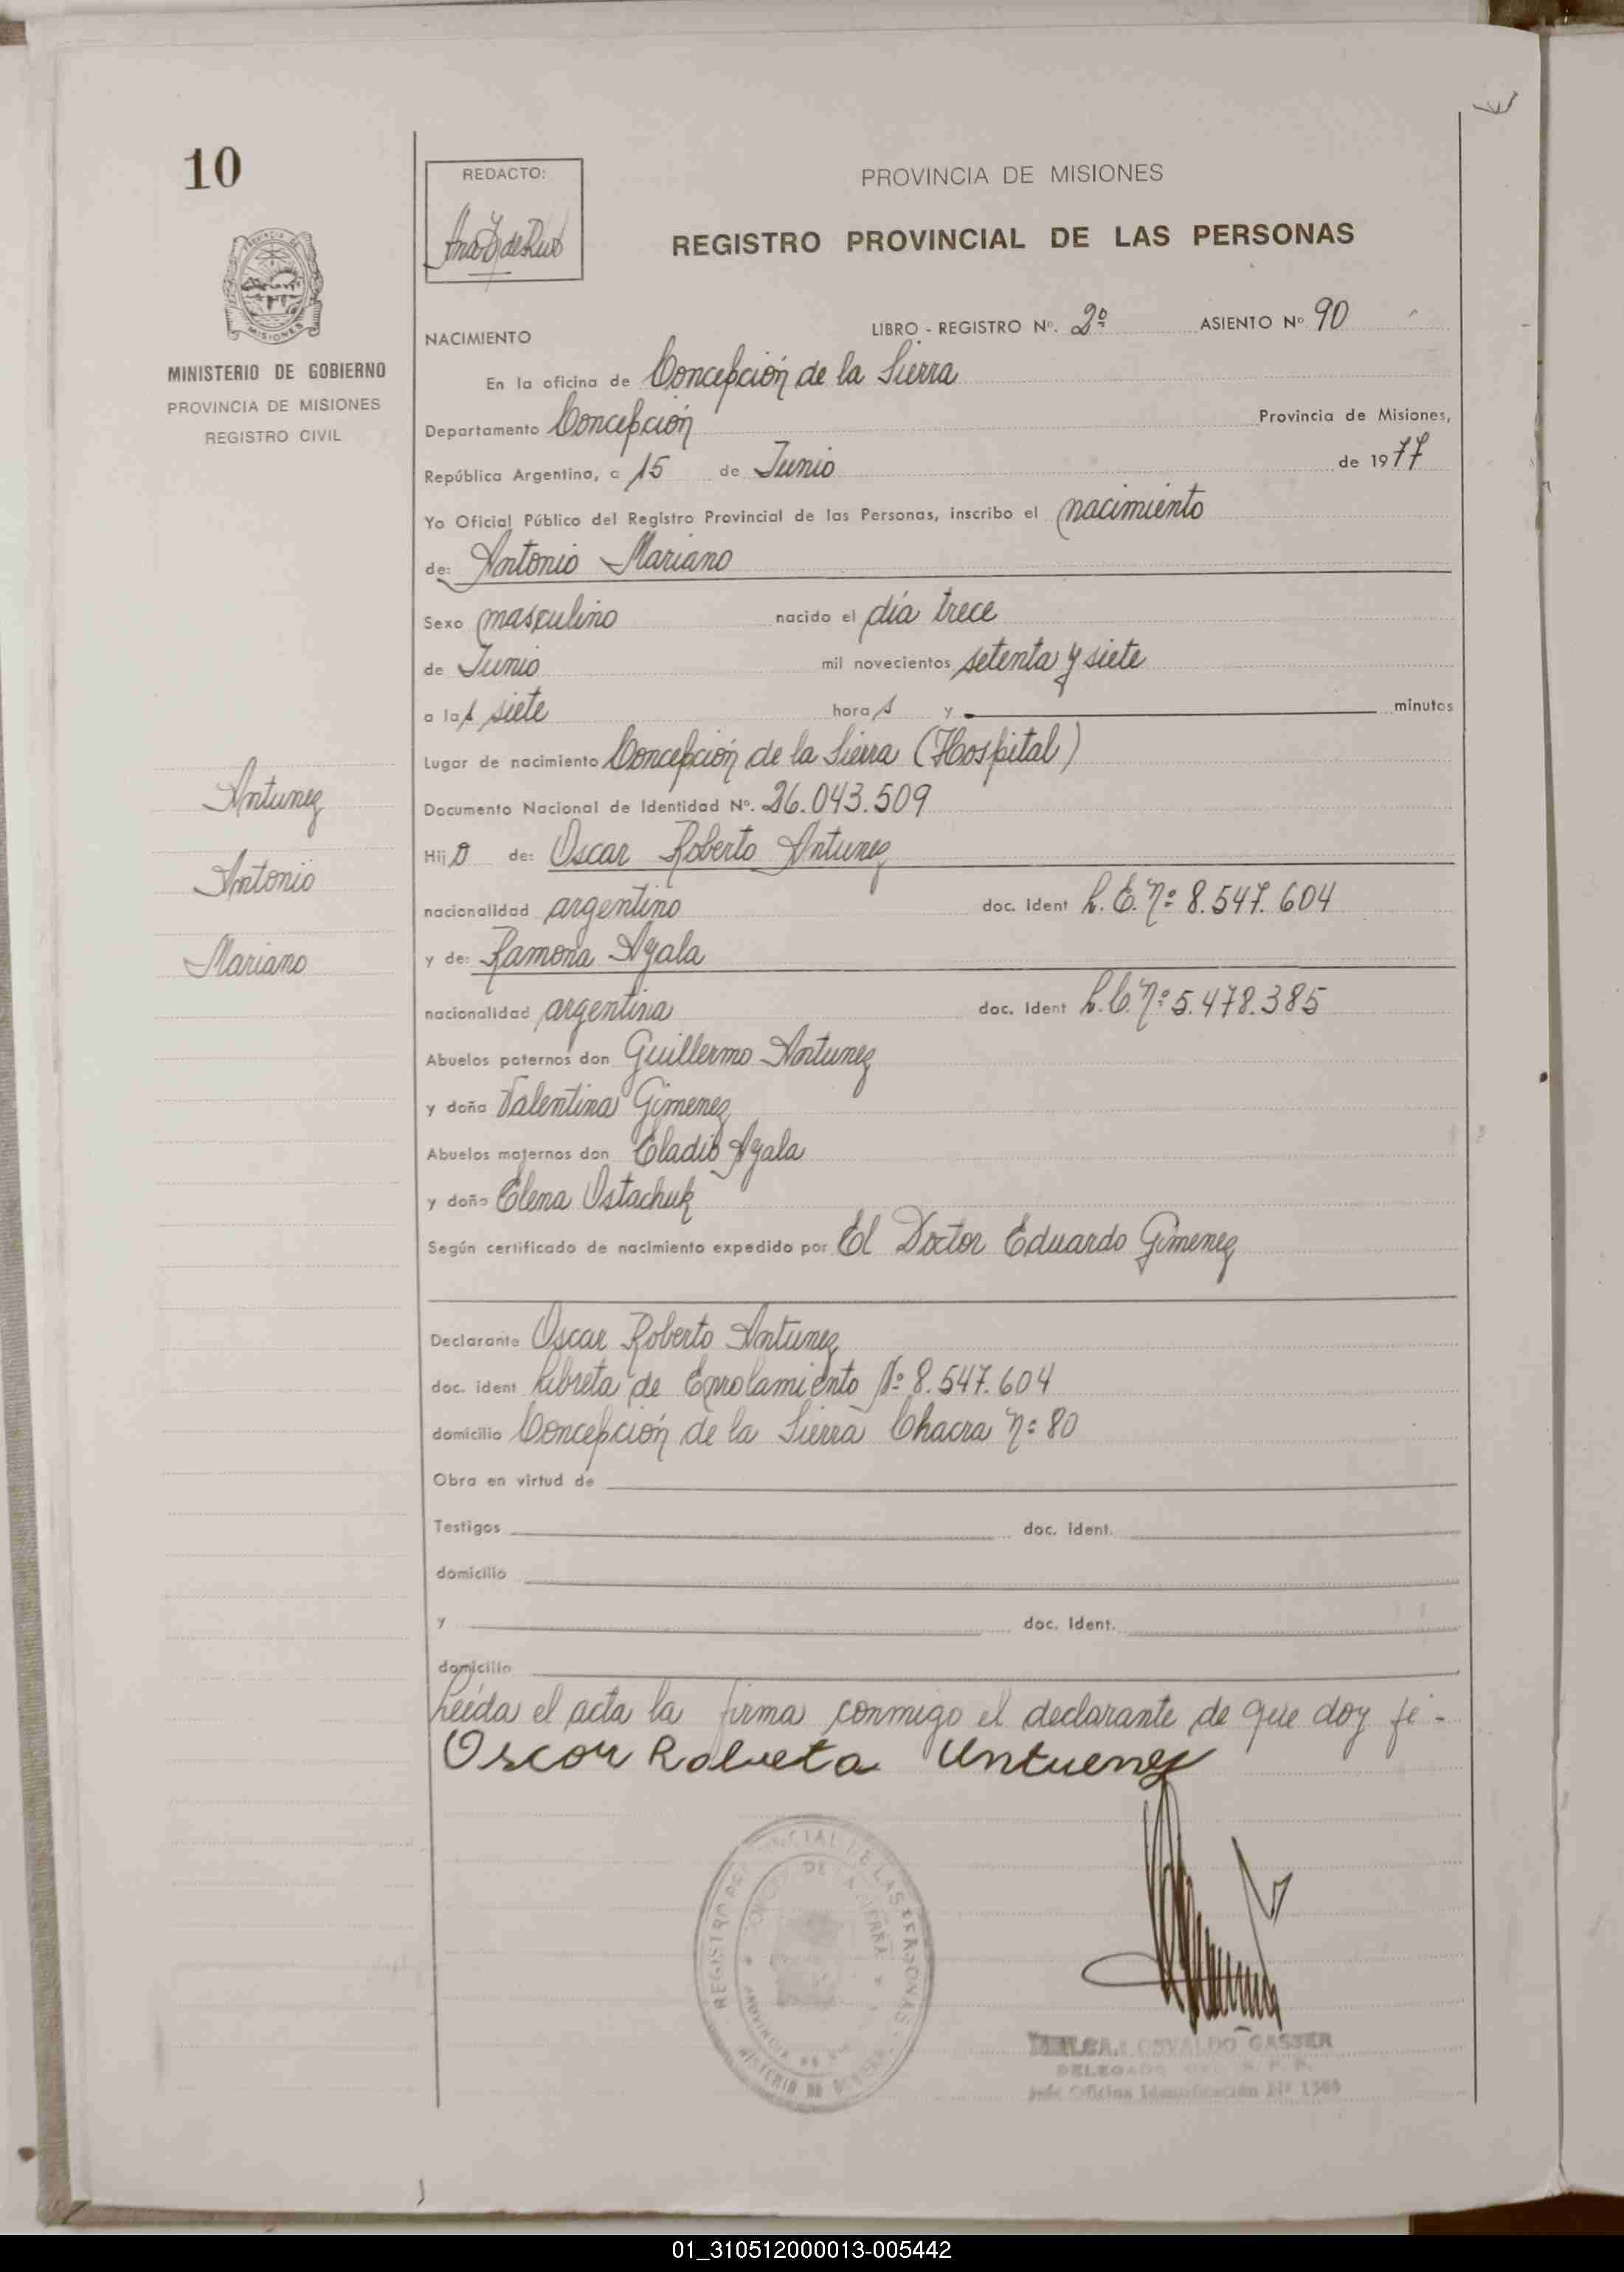 10
REDACTO:
PROVINCIA DE MISIONES
REGISTRO PROVINCIAL DE LAS PERSONAS
MINISTERIO DE GOBIERNO
PROVINCIA DE MISIONES
REGISTRO CIVIL
NACIMIENTO LIBRO - REGISTRO Nº. 2º ASIENTO Nº 90
En la oficina de Concepción de la Sierra
Departamento Concepción Provincia de Misiones,
República Argentina, a 15 de Junio de 1977
Yo Oficial Público del Registro Provincial de las Personas, inscribo el nacimiento
de: Antonio Mariano
Sexo masculino nacido el día trece
de Junio mil novecientos setenta y siete
a las siete horas y minutos
Lugar de nacimiento Concepción de la Sierra (Hospital)
Documento Nacional de Identidad Nº. 26.043.509
Hijo de: Oscar Roberto Antunez
nacionalidad argentino doc. Ident L.E. Nº 8.547.604
y de: Ramona Ayala
nacionalidad argentina doc. Ident L.C. Nº 5.478.385
Abuelos paternos don Guillermo Antunez
y doña Valentina Gimenez
Abuelos maternos don Eladio Ayala
y doña Elena Ostachuk
Según certificado de nacimiento expedido por El Doctor Eduardo Gimenez
Antunez
Antonio
Mariano
Declarante Oscar Roberto Antunez
doc. ident Libreta de Enrolamiento Nº 8.547.604
domicilio Concepción de la Sierra Chacra Nº 80
Obra en virtud de
Testigos doc. ident.
domicilio
y doc. Ident.
domicilio
Leída el acta la firma conmigo el declarante de que doy fé.-
Oscar Roberto Antunez
REGISTRO PROVINCIAL DE LAS PERSONAS
DE LA SIERRA
OSVALDO GASSER
DELEGADO DEL R. P. P.
Jefe Oficina Identificación Nº
01_310512000013-005442